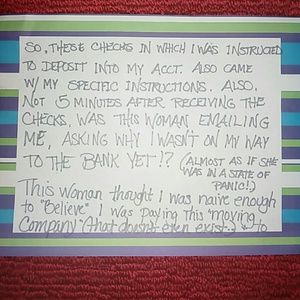 SO, THESE CHECKS IN WHICH I WAS INSTRUCTED
TO DEPOSIT INTO MY ACCT. ALSO CAME
W/ MY SPECIFIC INSTRUCTIONS. ALSO,
NOT 5 MINUTES AFTER RECEIVING THE
CHECKS, WAS THIS WOMAN EMAILING
ME, ASKING WHY I WASN'T ON MY WAY
TO THE BANK YET!? (ALMOST AS IF SHE
WAS IN A STATE OF
PANIC!)
This woman thought I was naive enough
to "Believe" I was paying this "moving
Company" (that doesn't even exist.) & to